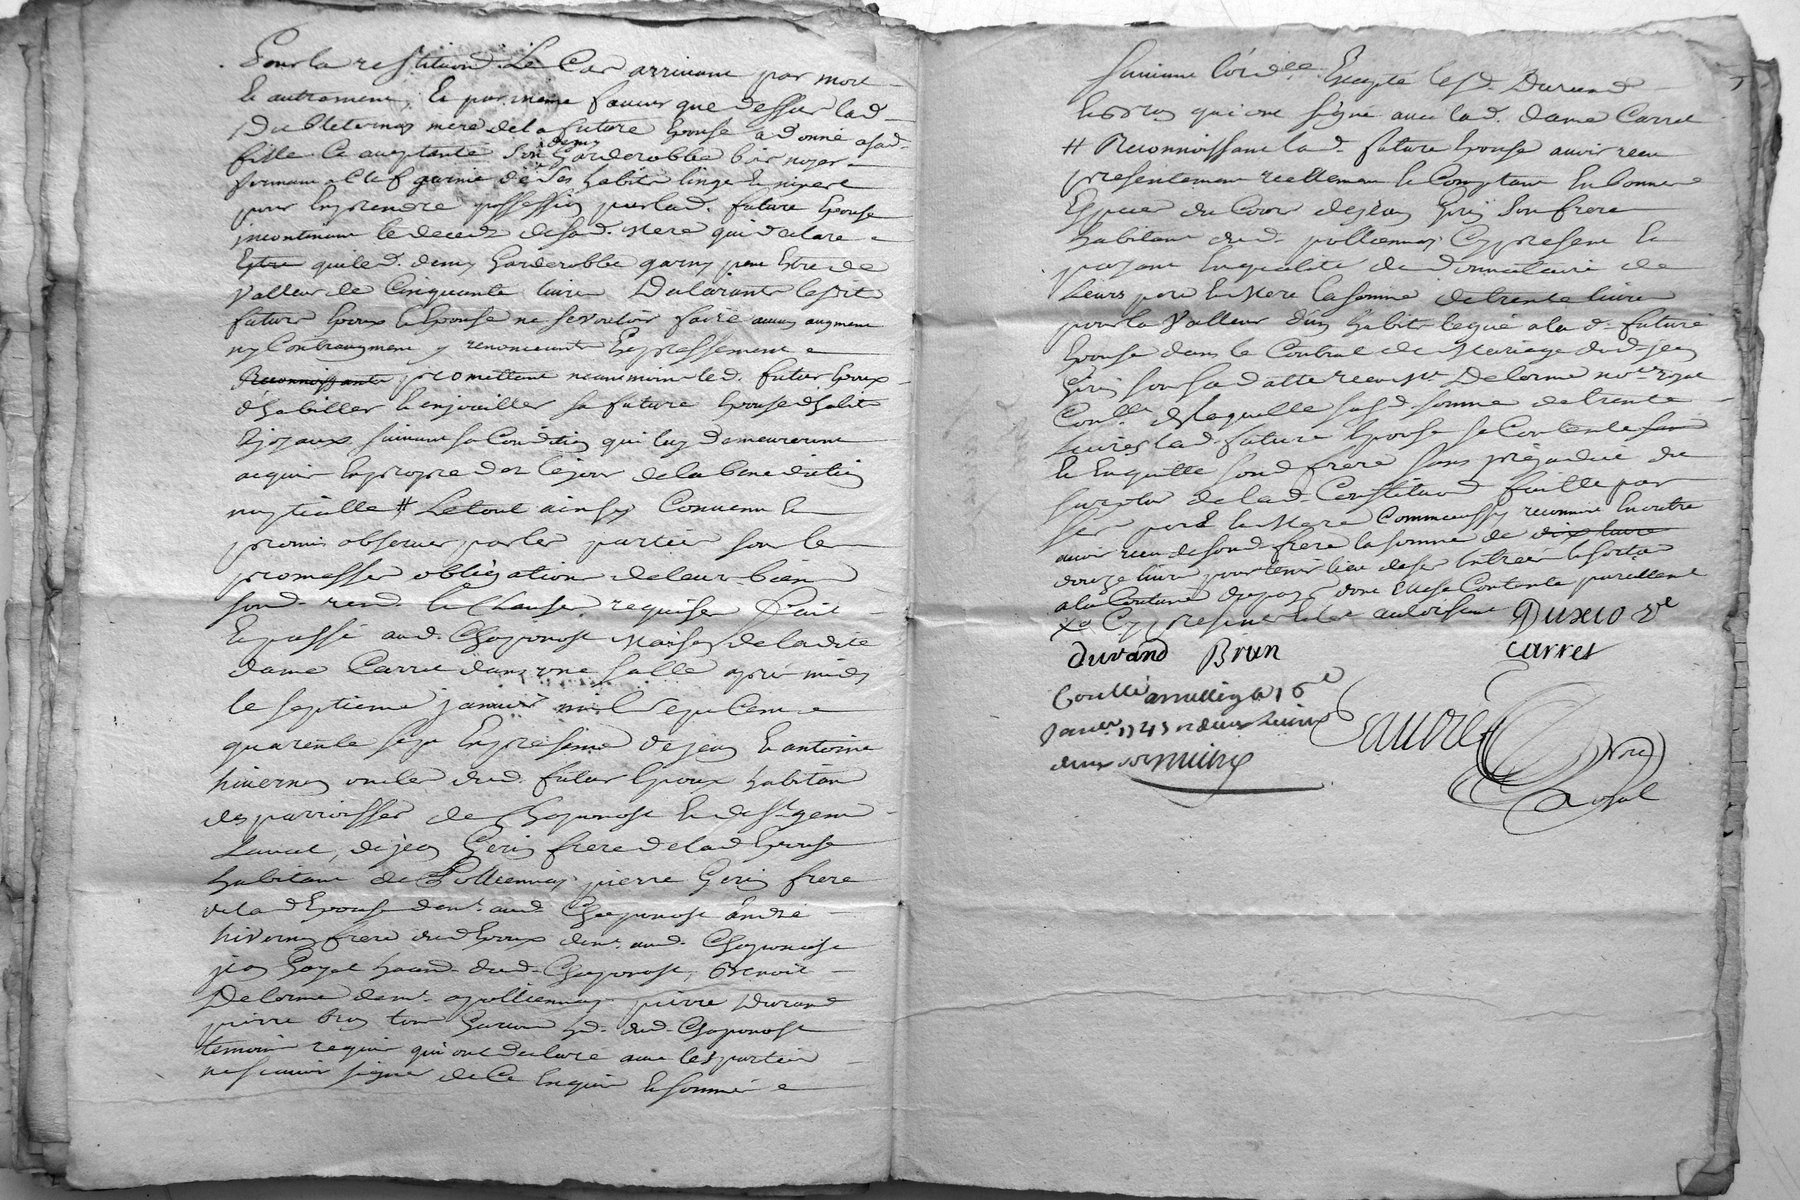 Pour la restitution Le Cas arrivant par mort
et autrement, et par mesme faveur que dessus lad
mere de la future Epouse a donné a sad
fille ce acceptante Son demy Garderobbe bois noyer
fermant a Clef garnie de Ses habits linge et nipes
pour en prendre possession par lad. future Epouse
incontinant le deced de sad. Mere qui declare
Estre que led. demy Garderobbe garny peut Estre de
Valleur de Cinquante livres Declarants lesdits
futurs Epoux et Epouse ne se vouloir faire aucun augment
ny Contraugment y renonceant Expressement
Reconnoissante promettant neanmoins led. futur Epoux
d'habiller et enjoailler sa future Epouse d'habits
et joyaux suivant sa Condition qui luy demeureront
acquis en propre des le jour de la benediction
nuptialle # Le tout ainsy Convenu et
promis observer par les parties sous les
promesses obligation de leurs biens
soud. rend. et Clauses requises fait
et passé aud. Chaponost Maison de ladite
dame Carret dans une salle apres midy
le septieme janvier mil sept Cent
quarente sept En presence de jean et antoine
hivernon oncles dud. futur Epoux habitans
des parroisses de Chaponost et de St. genis
Laval, de jean Gerin frere de lad Epouse
habitant de Pollionnay pierre Gerin frere
de lad Epouse demt. aud. Chaponost André
hivernon frere dud Epoux demt. aud. Chaponost
jean habd. dud. Chaponost, Benoit
Delorme demt. a pollionnay pierre Durand
pierre brun hd. dud. Chaponost
temoins requis qui ont declaré avec les parties
ne scavoir signer de Ce Enquis et sommés
suivant l'ordce. Excepté lesd. Durand
et brun qui ont signé avec lad. dame Carret
# Reconnoissant lad. future Epouse avoir receu
presentement reellement et Comptant En bonnes
Especes du Cours de jean Gerin Son frere
habitant dud. pollionnay Cy present et
payant En qualité de donnataire de
leurs pere et Mere la somme de trente livres
pour la Valleur d'un habit legué a lad. future
Epouse dans le Contrat de Mariage dud. jean
Gerin son sa datte receu Me. Delorme nore. royal
de laquelle susd somme de trente
livres lad. future Epouse se Contente
et En quitte soud frere sans prejudice du
surplus de lad Constitution faitte par
ses pere et Mere Comme aussy reconnoit En outre
avoir receu de soud. frere la somme de dix livres
douze livres pour tenir lieu de ses Entrées et sorties
a la Coutume du pays dont Elle se Contente pareillemt
Cy presente Elle autorisant Duxio Ve
durand Brun carret
Conllé le 16e
Janver. 1747 R deux livres
deux sols
Sauvre Nre
Royal